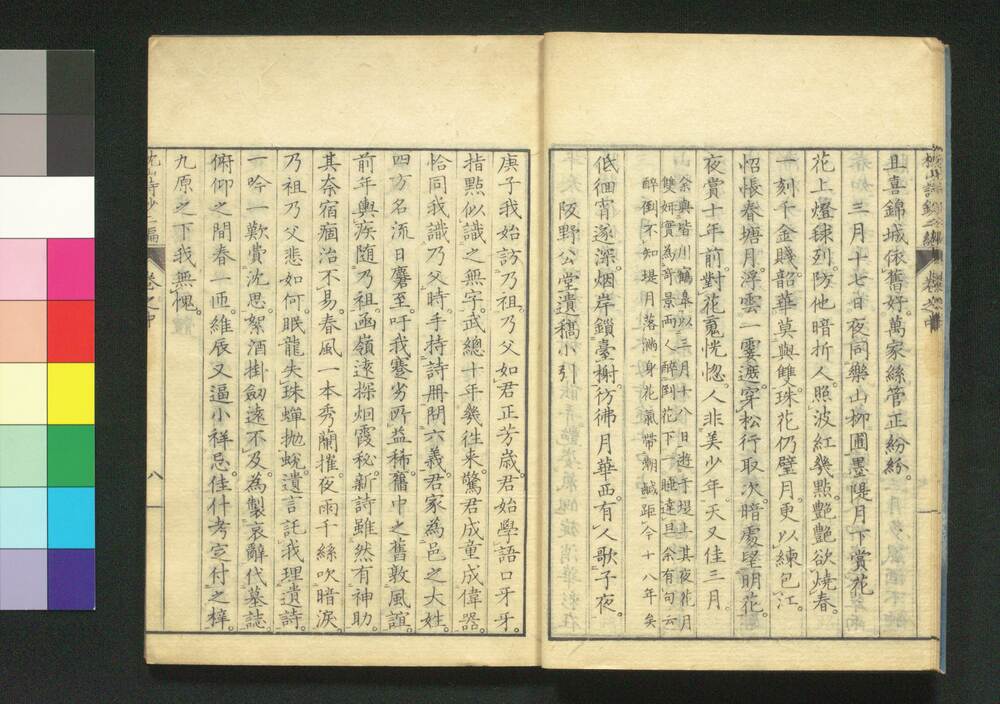 且喜錦城依舊好。萬家絲管正紛紛。
三月十七日。夜同樂山柳圃墨隄月下賞花
花上燈毬列。防他暗折人。照波紅幾點。艷艷欲燒春。
一刻千金賤。韶華莫與雙。珠花仍璧月。更以練包江。
怊悵春塘月。浮雲一霎遮。穿松行取次。暗處望明花。
夜賞十年前。對花寬恍惚。人非美少年。天又佳三月。
余與皆川鶴皐以三月十八日遊于堤上其夜花月
雙妍實為奇景両人醉到花下一睡達旦余有句云
醉倒不知堤月落滿身花氣帶潮鹹距今十八年矣
低徊宵遂深。烟岸鎖臺榭。彷彿月華西。有人歌子夜。
阪野公堂遺稿小引
庚子我始訪乃祖。乃父如君正芳歲。君始學語口牙牙。
指點似識之無字。武總十年幾徃来。驚君成童成偉器。
恰同我識乃父時。手持詩冊問六義。君家為邑之大姓。
四方名流日麕至。吁我蹇劣所益稀。舊中之舊敦風誼。
前年輿疾随乃祖。函嶺遠探烟霞秘。新詩雖然有神助。
其奈宿痼治不易。春風一本秀蘭摧。夜雨千絲吹暗淚。
乃祖乃父悲如何。眠龍失珠蟬抛蛻。遺言託我理遺詩。
一吟一歎賞沈思。絮酒掛劔遠不及。為製哀辭代墓誌。
俯仰之間春一匝。維辰又逼小祥忌。佳什考定付之梓。
九原之下我無愧。
卷之中
八